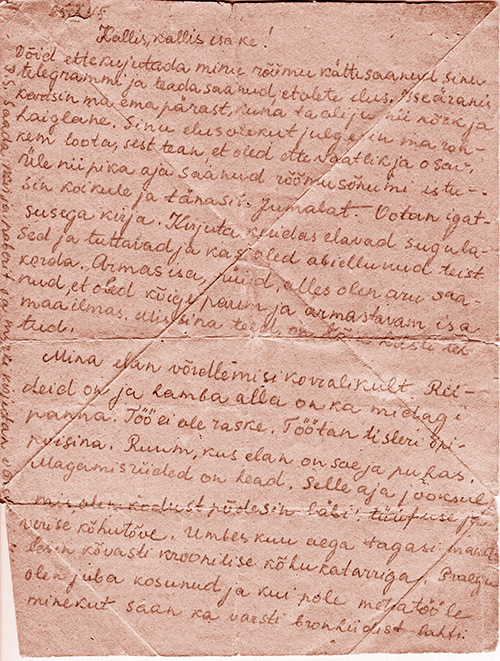 Kallis, kallis isake!
Võid ette kujutada minu rõõmu kätte saanud sinu
telegrammi ja teada saanud, et olete elus. Iseäranis
kartsin ma ema pärast, kuna ta oli ju nii nõrk ja
haiglane. Sinu elusolekut julgesin ma roh-
kem loota, sest tean, et oled ettevaatlik ja osav.
Üle nii pika aja saanud rõõmusõnumi istu-
sin kõikule ja tänasin Jumalat. Ootan igat-
susega kirja. Kirjuta kuidas elavad sugula-
sed ja tuttavad ja kas oled abiellunud teist
korda. Armas isa, nüüd, alles olen aru saa-
nud, et oled kõige parem ja armastavam isa
maailmas.
tud.
Mina elan võrdlemisi korralikult. Rii-
deid on ja hamba alla on ka midagi
panna. Töö ei ole raske. Töötan tisleri õpi-
poisina. Ruum, kus elan on soe ja puhas.
Magamisriided on head. Selle aja jooksul,
mis olen kodust põdesin läbi: tüüfuse ja
verise kõhutõve. Umbes kuu aega tagasi
kõvasti kroonilise kõhukatarriga. Praegu
olen juba kosunud ja kui pole metsatööle
minekut saan ka varsti bronhiidist lahti